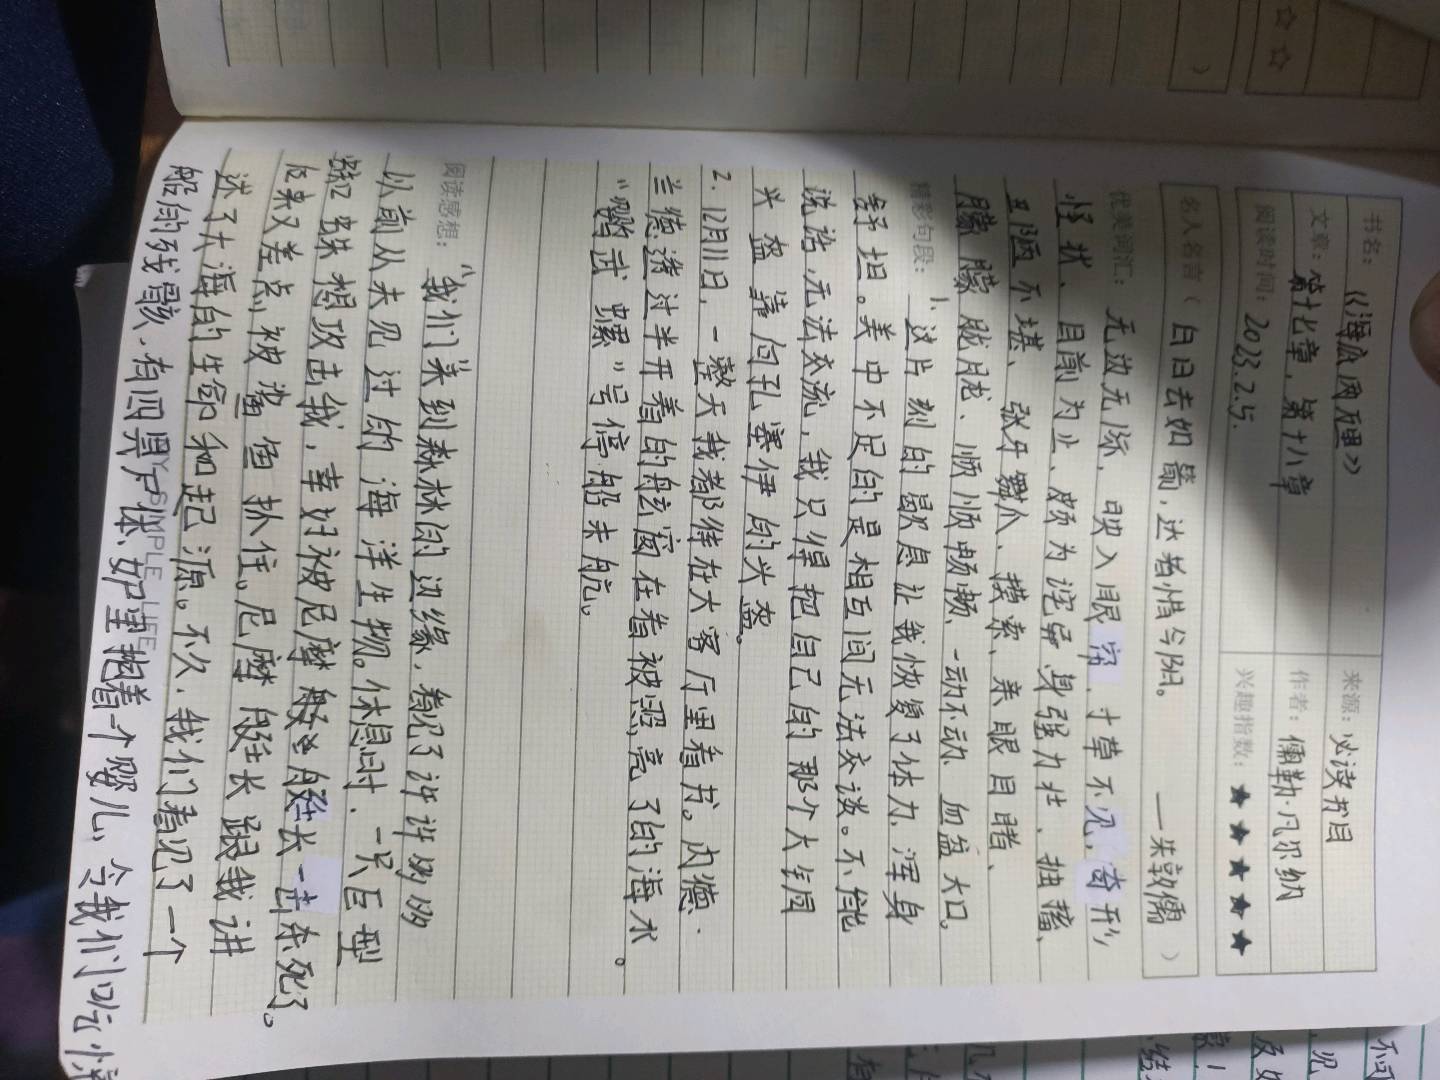 书名：《海底两万里》
来源：必读书目
文章：第十七章，第十八章
作者：儒勒·凡尔纳
阅读时间：2023.2.5.
兴趣指数：★★★★★
名人名言（白日去如箭，达者惜今阳。——朱敦儒）
优美词汇：无边无际、映入眼帘、寸草不见、奇形
怪状、目前为止、颇为诧异、身强力壮、抽搐、
丑陋不堪、张牙舞爪、摸索、亲眼目睹、
朦朦胧胧、顺顺顿顿、一动不动、血盆大口。
精彩句段：1、这片刻的歇息让我恢复了体力，浑身
舒坦。美中不足的是相互间无法交谈。不能
说话，无法交流，我只得把自己的那个大铜
头盔靠向孔塞伊的头盔。
2.12月11日，一整天我都待在大客厅里看书。内德·
兰德透过半开着的舷窗在看被照亮了的海水。
“鹦鹉螺”号停船未航。
阅读感想：“我们”来到森林的边缘，看见了许许多多
以前从未见过的海洋生物。休息时，一只巨型
蜘蛛想攻击我，幸好被尼摩船长一击杀死了。
后来又差点被鲨鱼扑住。尼摩船长跟我讲
述了大海的生命和起源。不久，我们看见了一个
船的残骸，有四具尸体、妒里抱着一个婴儿，令我们吃惊
SIMPLE LIFE